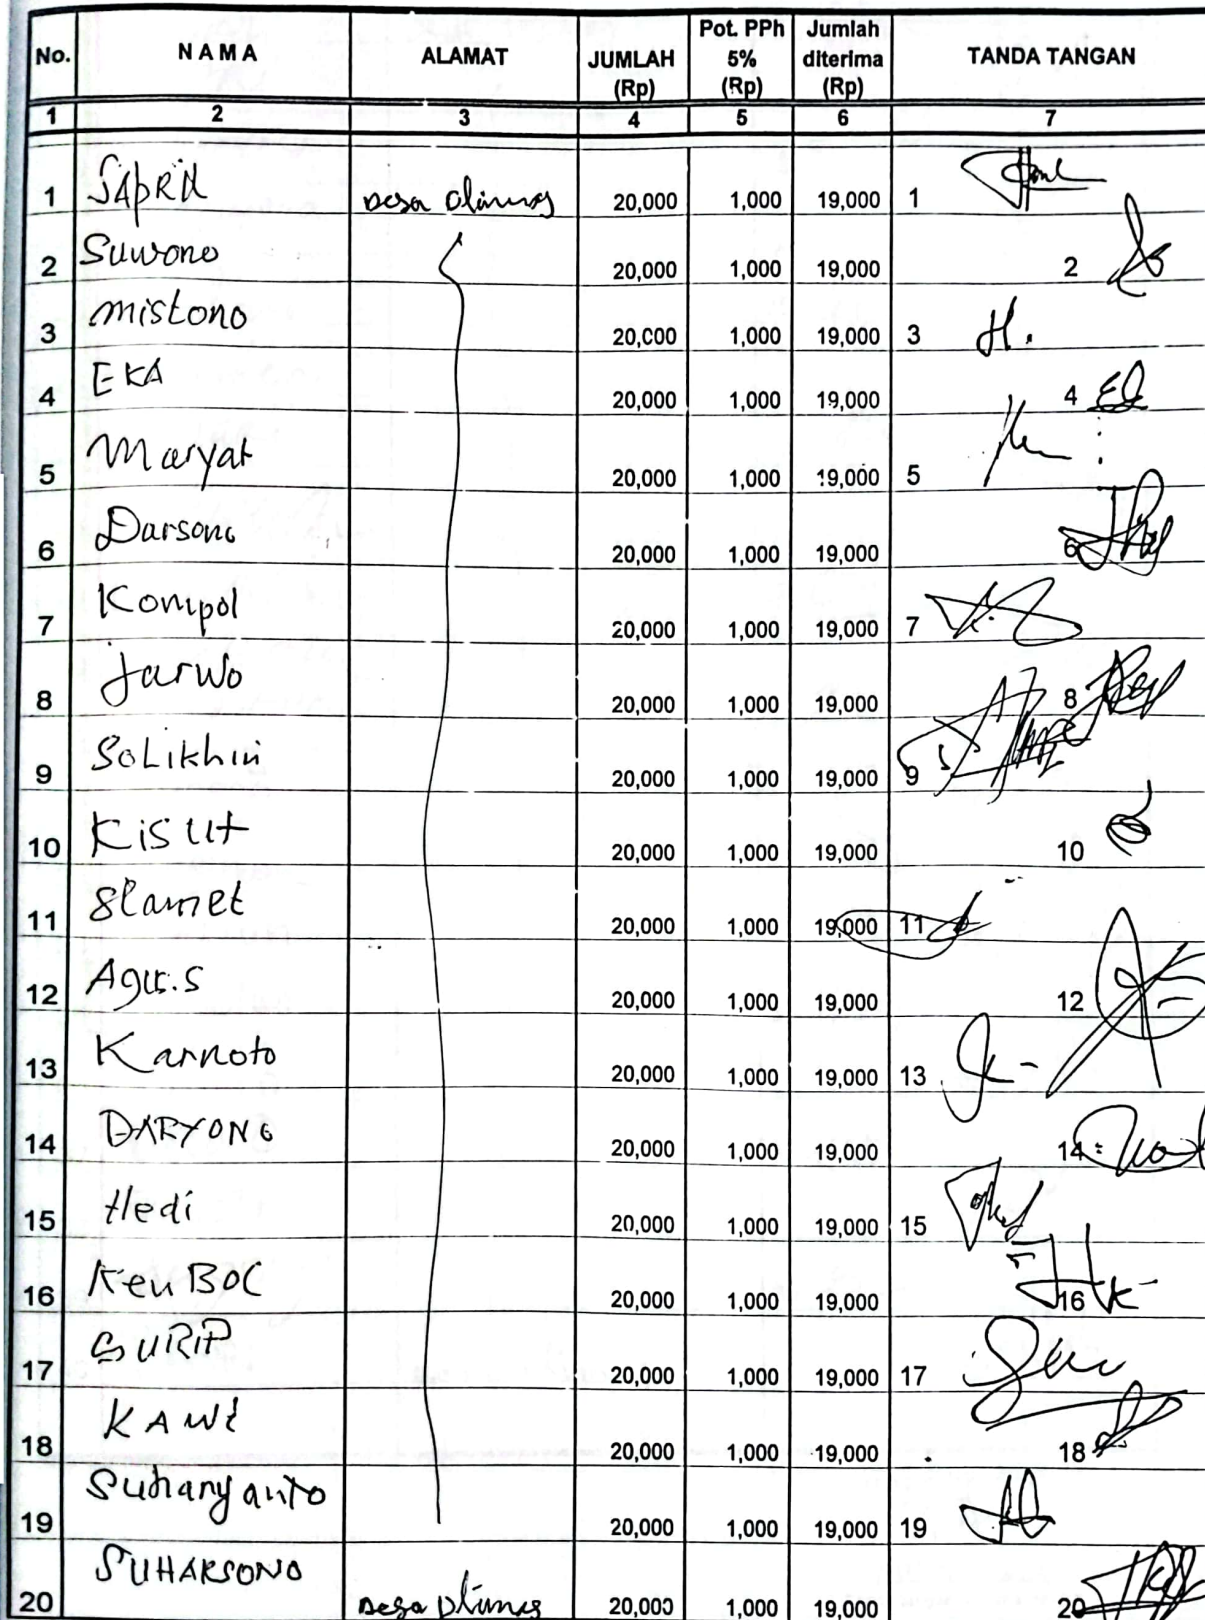 No. NAMA ALAMAT JUMLAH (Rp) Pot. PPh 5% (Rp) Jumlah diterima (Rp) TANDA TANGAN
1 2 3 4 5 6 7
1 SApRil Desa 20,000 1,000 19,000 1
2 Suwono 20,000 1,000 19,000 2
3 mistono 20,000 1,000 19,000 3
4 EKA 20,000 1,000 19,000 4
5 Maryat 20,000 1,000 19,000 5
6 Darsono 20,000 1,000 19,000 6
7 Kompol 20,000 1,000 19,000 7
8 Jarwo 20,000 1,000 19,000 8
9 SoLikhin 20,000 1,000 19,000 9
10 Kisut 20,000 1,000 19,000 10
11 Slamet 20,000 1,000 19,000 11
12 Agus.s 20,000 1,000 19,000 12
13 Karnoto 20,000 1,000 19,000 13
14 DARYONO 20,000 1,000 19,000 14
15 Hedi 20,000 1,000 19,000 15
16 20,000 1,000 19,000 16
17 SURIP 20,000 1,000 19,000 17
18 KAWI 20,000 1,000 19,000 18
19 Suharyanto 20,000 1,000 19,000 19
20 SUHARSONO Desa 20,000 1,000 19,000 20